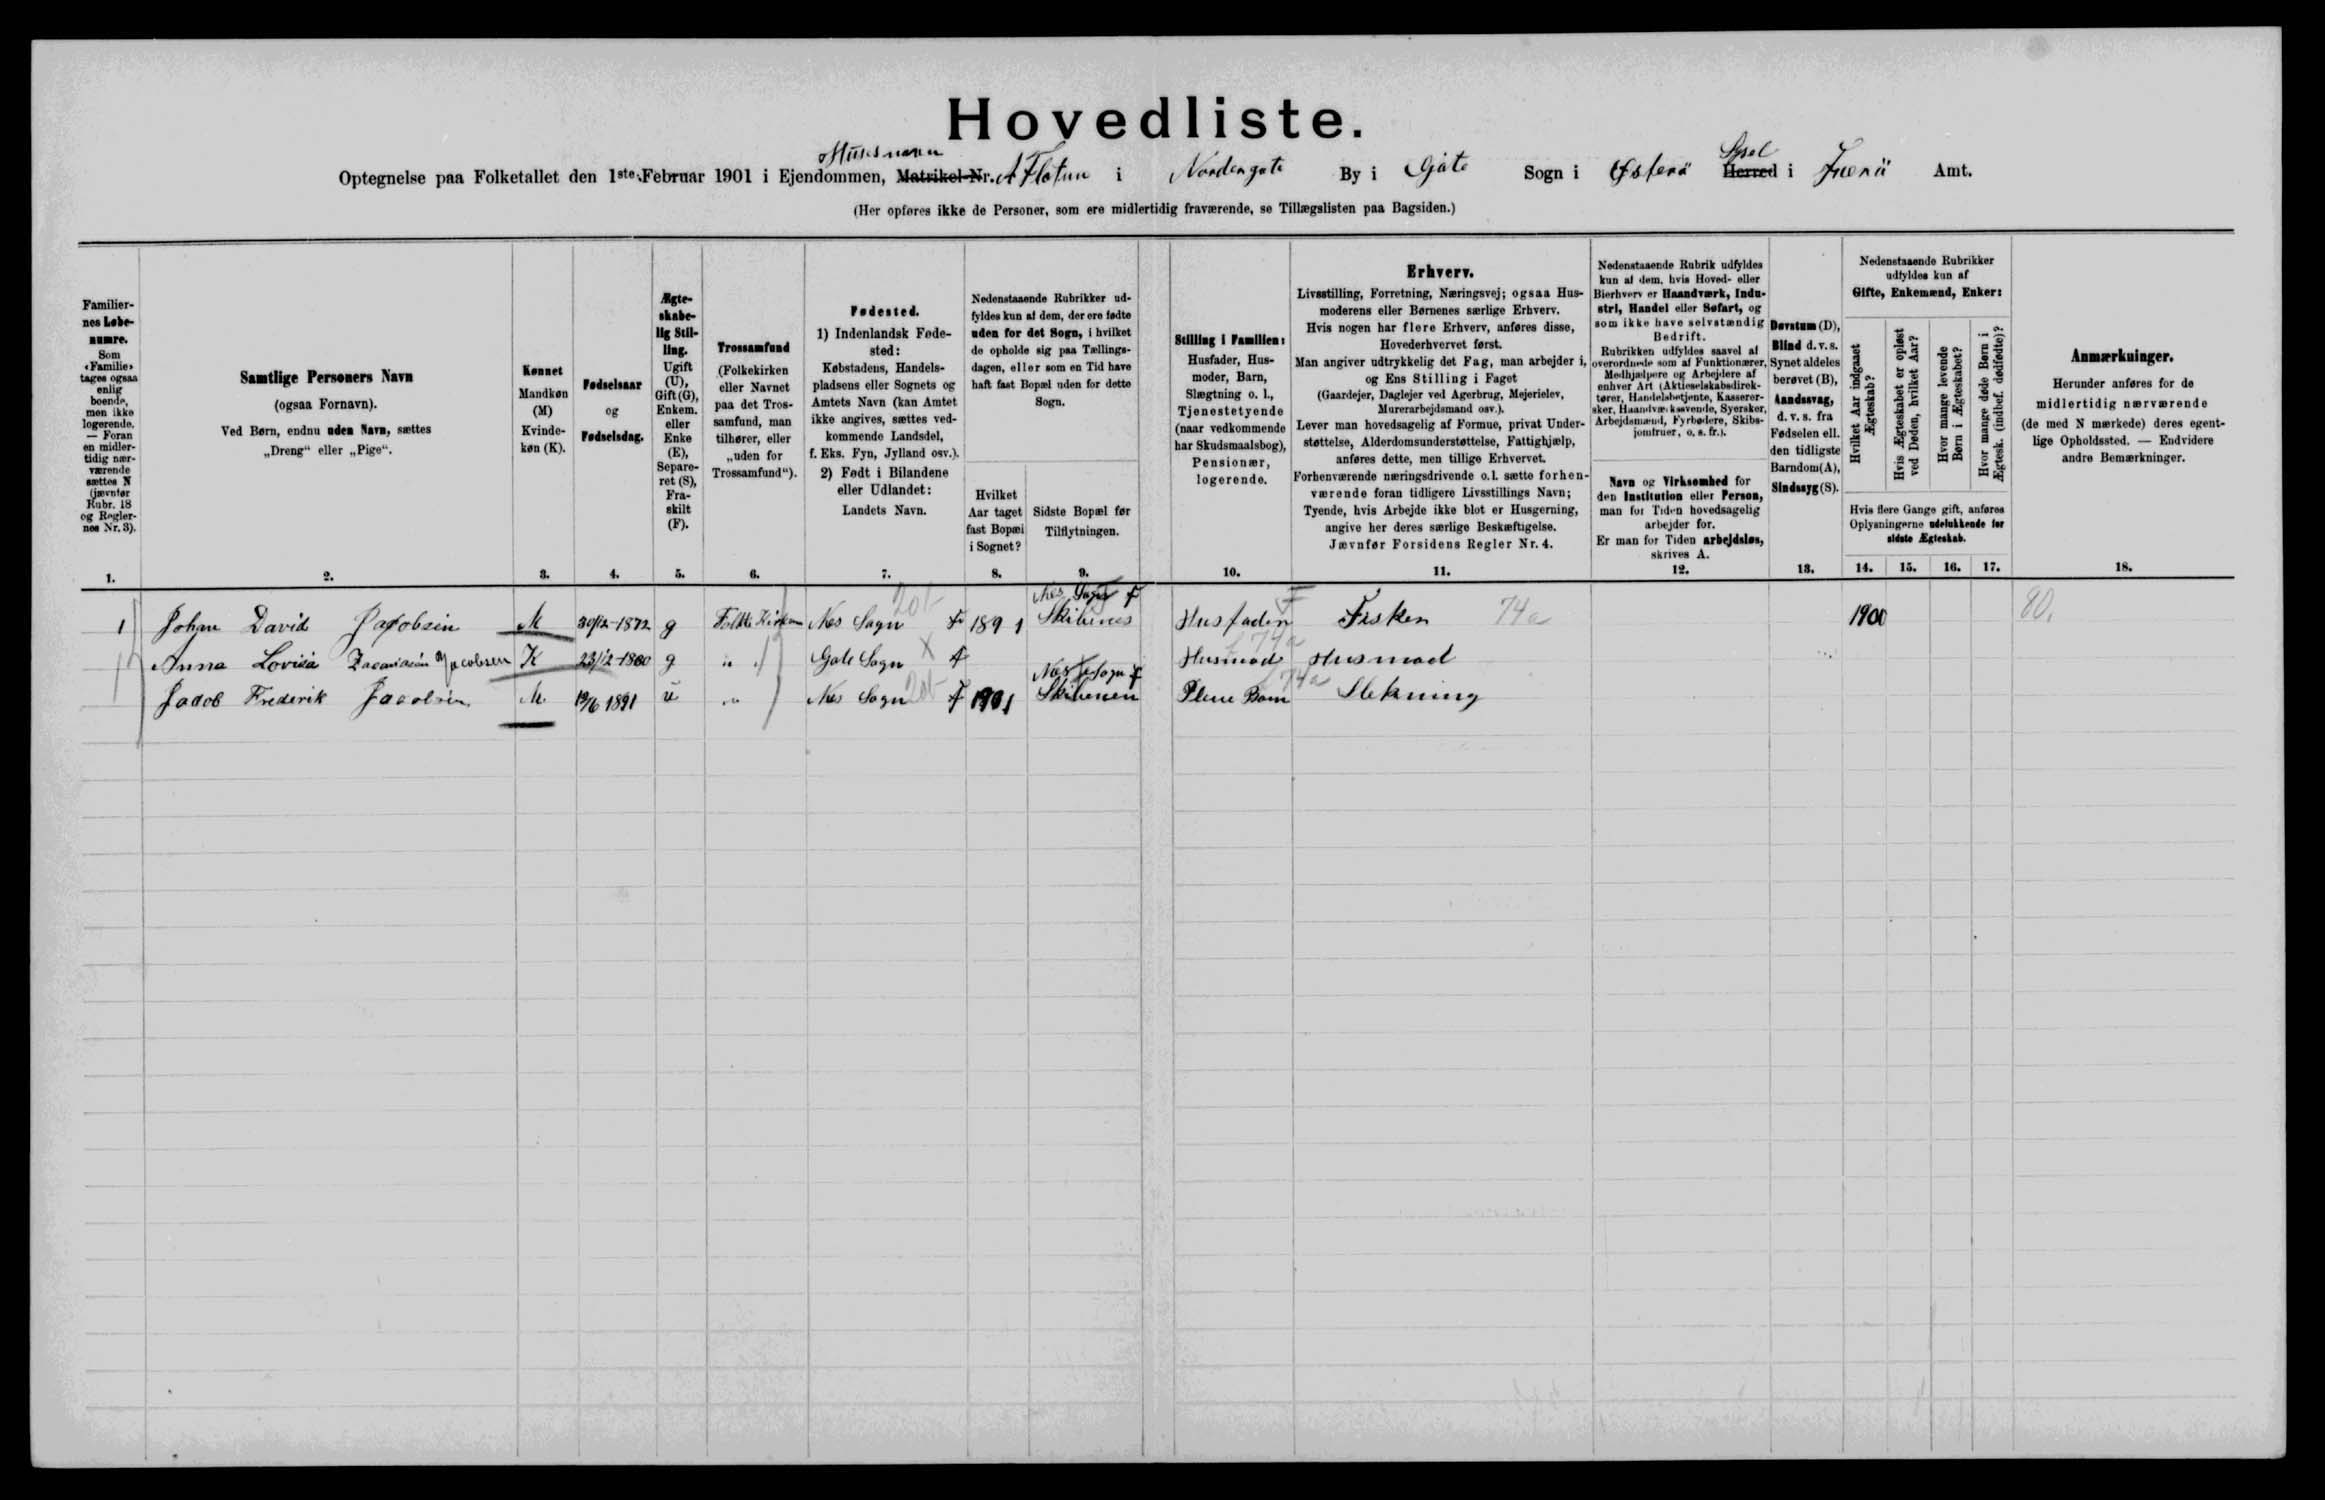 Hovedliste.
Husesnavn
Optegnelse paa Folketallet den 1ste Februar 1901 i Ejendommen, Matrikel-Nr. A Flotun i Nordregøte By i Gjøte Sogn i Østerø Herred i Færø Amt.
Sysel
(Her opføres ikke de Personer, som ere midlertidig fraværende, se Tillægslisten paa Bagsiden.)
Familier-
nes Løbe-
numre.
Som
‹Familie›
tages ogsaa
enlig
boende,
men ikke
logerende.
— Foran
en midler-
tidig nær-
værende
sættes N
(jævnfør
Rubr. 18
og Regler-
nes Nr. 3).
1.
Samtlige Personers Navn
(ogsaa Fornavn).
Ved Børn, endnu uden Navn, sættes
„Dreng“ eller „Pige“.
2.
Kønnet
Mandkøn
(M)
Kvinde-
køn (K).
3.
Fødselsaar
og
Fødselsdag.
4.
Ægte-
skabe-
lig Stil-
ling.
Ugift
(U),
Gift (G),
Enkem.
eller
Enke
(E),
Separe-
ret (S),
Fra-
skilt
(F).
5.
Trossamfund
(Folkekirken
eller Navnet
paa det Tros-
samfund, man
tilhører, eller
„uden for
Trossamfund“).
6.
Fødested.
1) Indenlandsk Føde-
sted:
Købstadens, Handels-
pladsens eller Sognets og
Amtets Navn (kan Amtet
ikke angives, sættes ved-
kommende Landsdel,
f. Eks. Fyn, Jylland osv.).
2) Født i Bilandene
eller Udlandet:
Landets Navn.
7.
Nedenstaaende Rubrikker ud-
fyldes kun af dem, der ere fødte
uden for det Sogn, i hvilket
de opholde sig paa Tællings-
dagen, eller som en Tid have
haft fast Bopæl uden for dette
Sogn.
Hvilket
Aar taget
fast Bopæl
i Sognet?
8.
Sidste Bopæl før
Tilflytningen.
9.
Stilling i Familien:
Husfader, Hus-
moder, Barn,
Slægtning o. l.,
Tjenestetyende
(naar vedkommende
har Skudsmaalsbog),
Pensionær,
logerende.
10.
Erhverv.
Livsstilling, Forretning, Næringsvej; ogsaa Hus-
moderens eller Børnenes særlige Erhverv.
Hvis nogen har flere Erhverv, anføres disse,
Hovederhvervet først.
Man angiver udtrykkelig det Fag, man arbejder i,
og Ens Stilling i Faget
(Gaardejer, Daglejer ved Agerbrug, Mejerielev,
Murerarbejdsmand osv.).
Lever man hovedsagelig af Formue, privat Under-
støttelse, Alderdomsunderstøttelse, Fattighjælp,
anføres dette, men tillige Erhvervet.
Forhenværende næringsdrivende o. l. sætte forhen-
værende foran tidligere Livsstillings Navn;
Tyende, hvis Arbejde ikke blot er Husgerning,
angive her deres særlige Beskæftigelse.
Jævnfør Forsidens Regler Nr. 4.
11.
Nedenstaaende Rubrik udfyldes
kun af dem, hvis Hoved- eller
Bierhverv er Haandværk, Indu-
stri, Handel eller Søfart, og
som ikke have selvstændig
Bedrift.
Rubrikken udfyldes saavel af
overordnede som af Funktionærer,
Medhjælpere og Arbejdere af
enhver Art (Aktieselskabsdirek-
tører, Handelsbetjente, Kasserer-
sker, Haandværkssvende, Syersker,
Arbejdsmænd, Fyrbødere, Skibs-
jomfruer, o. s. fr.).
Navn og Virksomhed for
den Institution eller Person,
man for Tiden hovedsagelig
arbejder for.
Er man for Tiden arbejdsløs,
skrives A.
12.
Døvstum (D),
Blind d. v. s.
Synet aldeles
berøvet (B),
Aandssvag,
d. v. s. fra
Fødselen ell.
den tidligste
Barndom (A),
Sindssyg (S).
13.
Nedenstaaende Rubrikker
udfyldes kun af
Gifte, Enkemænd, Enker:
Hvilket Aar indgaaet
Ægteskab?
Hvis Ægteskabet er opløst
ved Døden, hvilket Aar?
Hvor mange levende
Børn i Ægteskabet?
Hvor mange døde Børn i
Ægtesk. (indbef. dødfødte)?
Hvis flere Gange gift, anføres
Oplysningerne udelukkende for
sidste Ægteskab.
14. 15. 16. 17.
Anmærkninger.
Herunder anføres for de
midlertidig nærværende
(de med N mærkede) deres egent-
lige Opholdssted. — Endvidere
andre Bemærkninger.
18.
1 Johan David Jacobsen M 30/12-1872 g Folke Kirken Nes Sogn F 1891 Nes Sogn F Skibenes Husfaden Fisken 74a 1900 80.
Anna Lovisa Zacariasen Jacobsen K 23/12-1880 g " " Gøte Sogn F Husmod Husmod
Jacob Frederik Jacobsen M 19/6 1891 u " Nes Sogn F 1901 Nes Sogn F Skibenen Pleie Barn Slekning